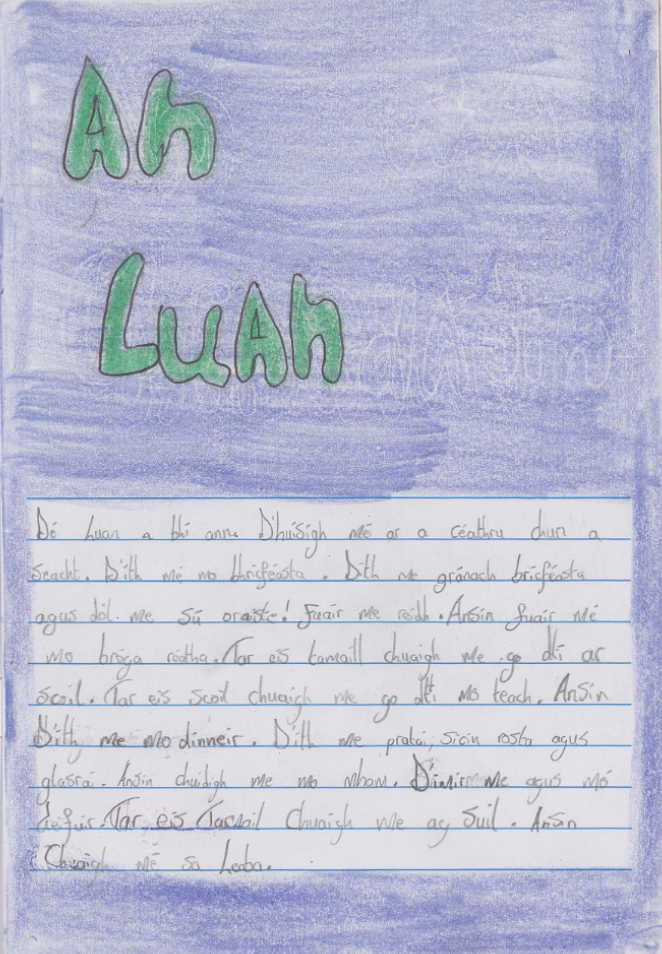 An
Luan
Dé Luan a bhí ann. D'huisigh mé ar a céathru chun a
seacht. D'ith mé mo bhricféasta. D'ith me gránach bricféasta
agus dól me sú oraiste! Fuair me reidh. Ansin fuair mé
mo bróga reatha. Tar eis tamaill chuaigh me go dtí ar
scoil. Tar eis scoil chuaigh me go dtí mo teach. Ansin
D'ith me mo dinneir. D'ith me prataí, sicín rosta agus
glasraí. Ansin chuidigh me mo mham. D'imir me agus mó
Tar eis Tamaill Chuaigh me ag Suil. Ansin
Chuaigh mé sa Leaba.